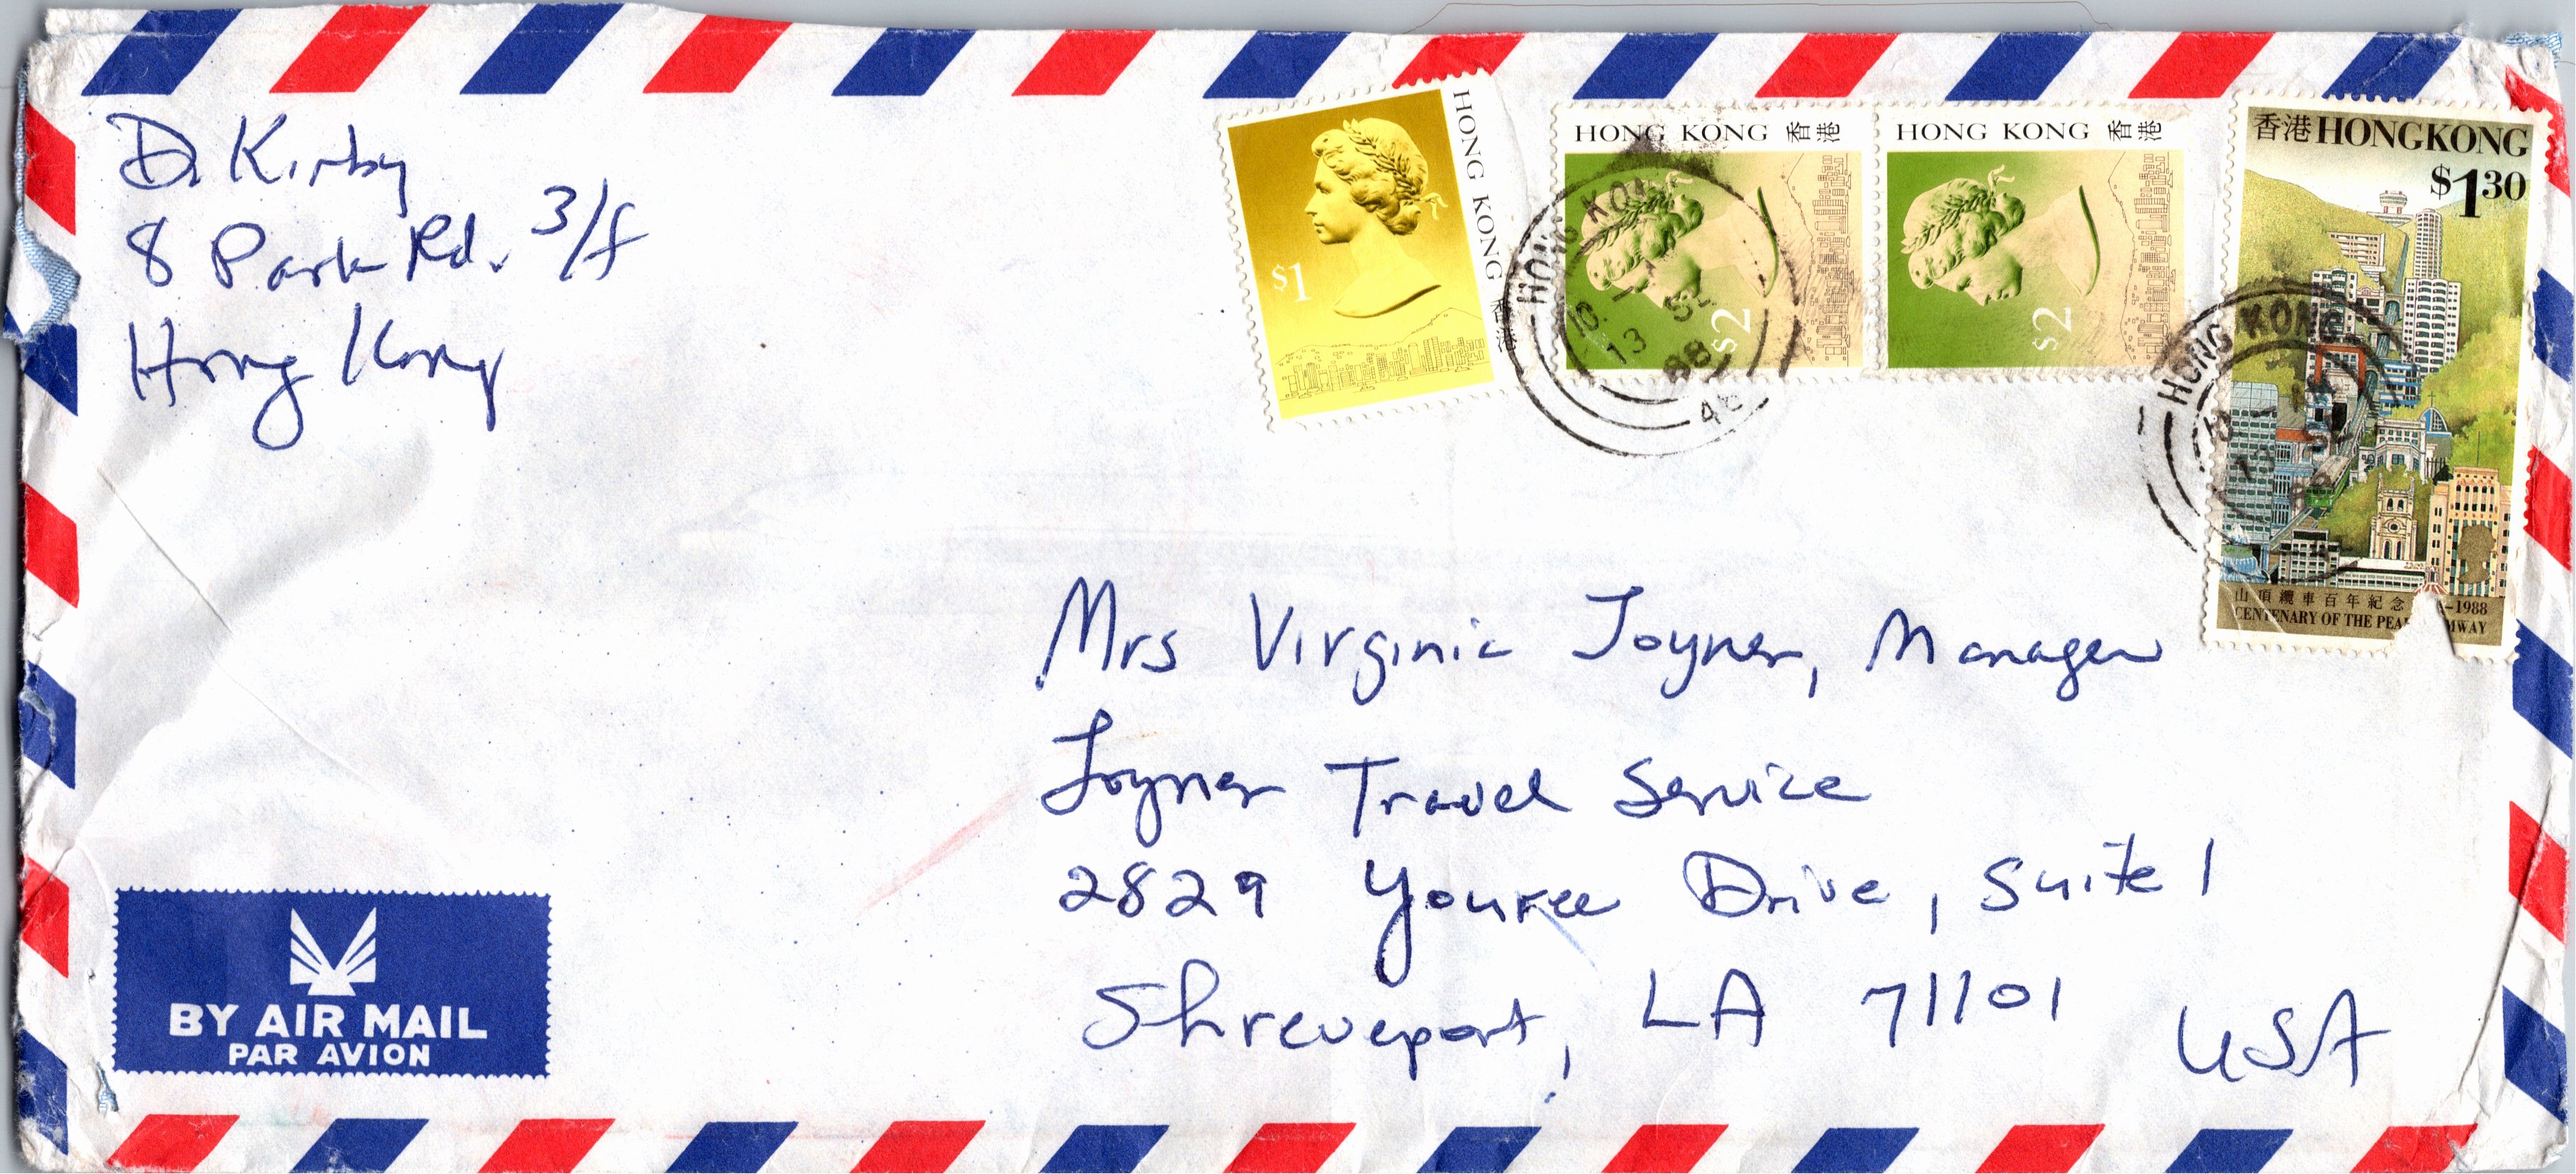 D. Kirby
8 Park Rd. 3/f
Hong Kong
HONG KONG 香港
$1
HONG KONG 香港
$2
HONG KONG 香港
$2
香港 HONG KONG
$1.30
山頂纜車百年紀念 -1988
CENTENARY OF THE PEA MWAY
HONG KO
10.
13
88
HONG KONG
Mrs Virginia Joyner, Manager
Joyner Travel Service
2829 Youree Drive, Suite 1
Shreveport, LA 71101
USA
BY AIR MAIL
PAR AVION